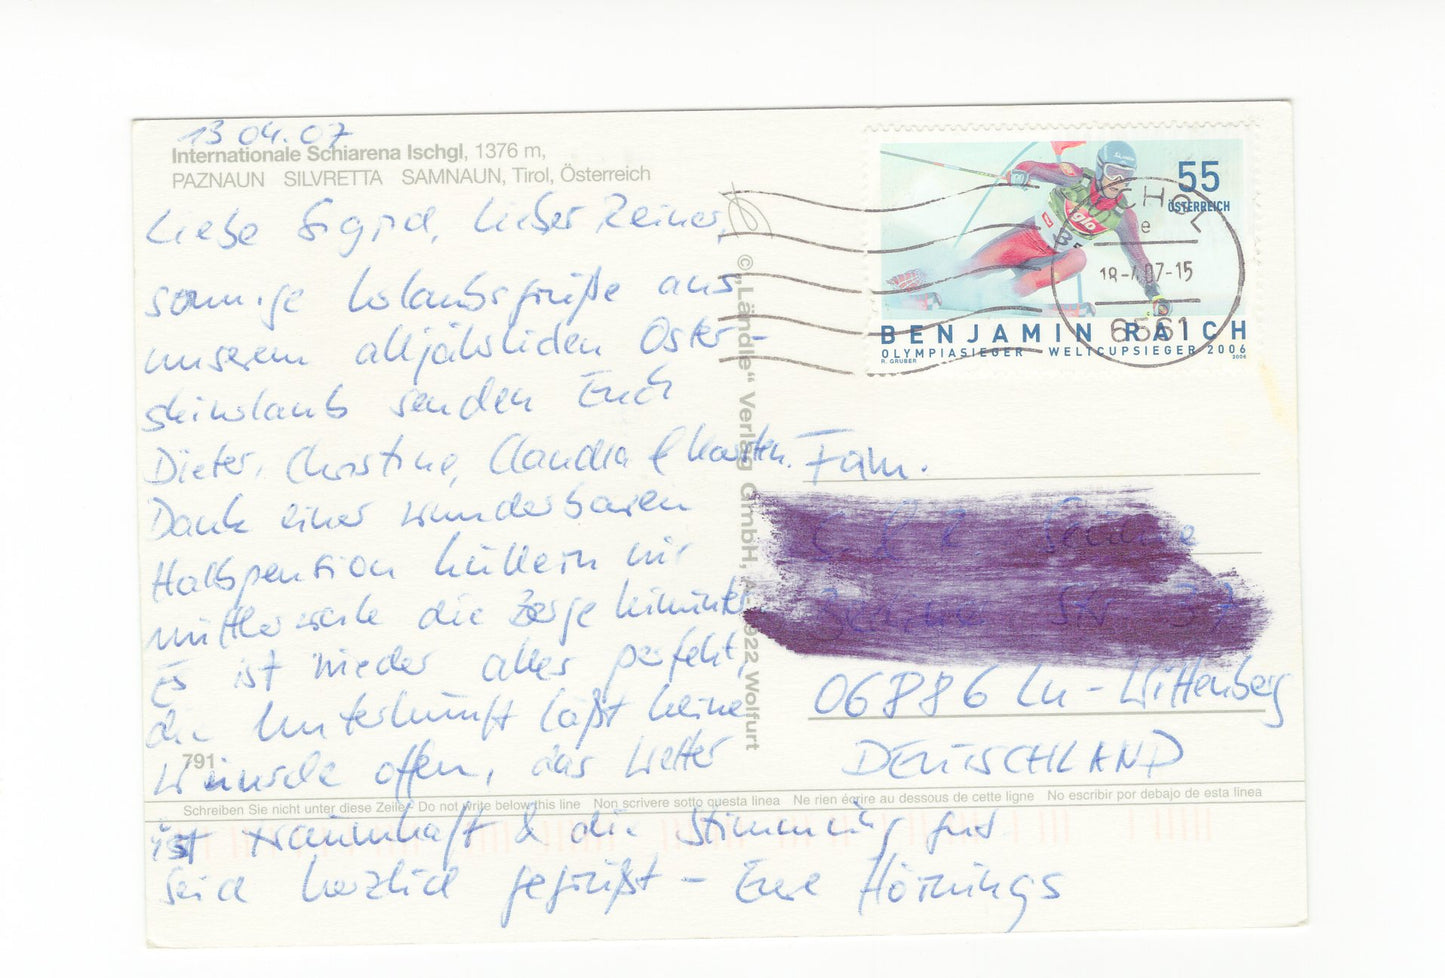 13.04.07
Internationale Schiarena Ischgl, 1376 m,
PAZNAUN SILVRETTA SAMNAUN, Tirol, Österreich
Liebe Sigrid, lieber Reiner,
sonnige Urlaubsgrüße aus
unserem alljährlichen Oster-
skiurlaub senden Euch
Dieter, Christine, Claudia & Karsten.
Dank einer wunderbaren
Halbpension hüllern wir
mittlerweile die Berge hinunter.
Es ist wieder alles perfekt,
die Unterkunft läßt keine
Wünsche offen, das Wetter
ist traumhaft & die Stimmung gut
Seid herzlich gegrüßt - Eure Hörnings
791
Schreiben Sie nicht unter diese Zeile Do not write below this line Non scrivere sotto questa linea Ne rien écrire au dessous de cette ligne No escribir por debajo de esta linea
© "Ländle" Verlag GmbH, A-6922 Wolfurt
55
ÖSTERREICH
BENJAMIN RAICH
OLYMPIASIEGER WELTCUPSIEGER 2006
R. GRUBER 2006
ISCHGL
e
18-4.07-15
6561
Fam.
06886 Lu-Wittenberg
DEUTSCHLAND